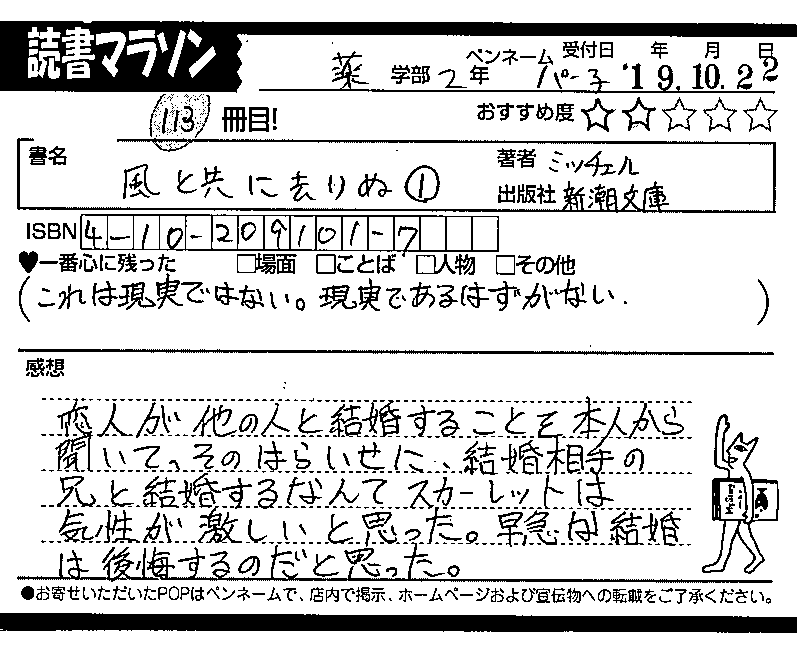 読書マラソン
薬 学部 2年 ペンネーム パー子 受付日 '19年10月22日
113 冊目! おすすめ度 ☆☆☆☆☆
書名 風と共に去りぬ① 著者 ミッチェル
出版社 新潮文庫
ISBN 4-10-209101-7
♥一番心に残った □場面 □ことば □人物 □その他
(これは現実ではない。現実であるはずがない.)
感想
恋人が他の人と結婚することを本人から
聞いて、そのはらいせに、結婚相手の
兄と結婚するなんてスカーレットは
気性が激しいと思った。早急な結婚
は後悔するのだと思った。
●お寄せいただいたPOPはペンネームで、店内で掲示、ホームページおよび宣伝物への転載をご了承ください。